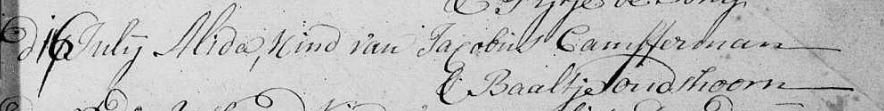 & Fijtje de Jong
d 16 Julij Alida, Kind van Jacobus Campferman
& Baaltje Oudshoorn